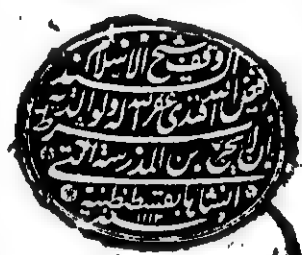 وقف شيخ الاسلام السيد
فيض الله افندى غفر الله له ولوالديه بشرط
ان لا يخرج من المدرسة التى
انشاها بقسطنطينية سنة ١١١٣